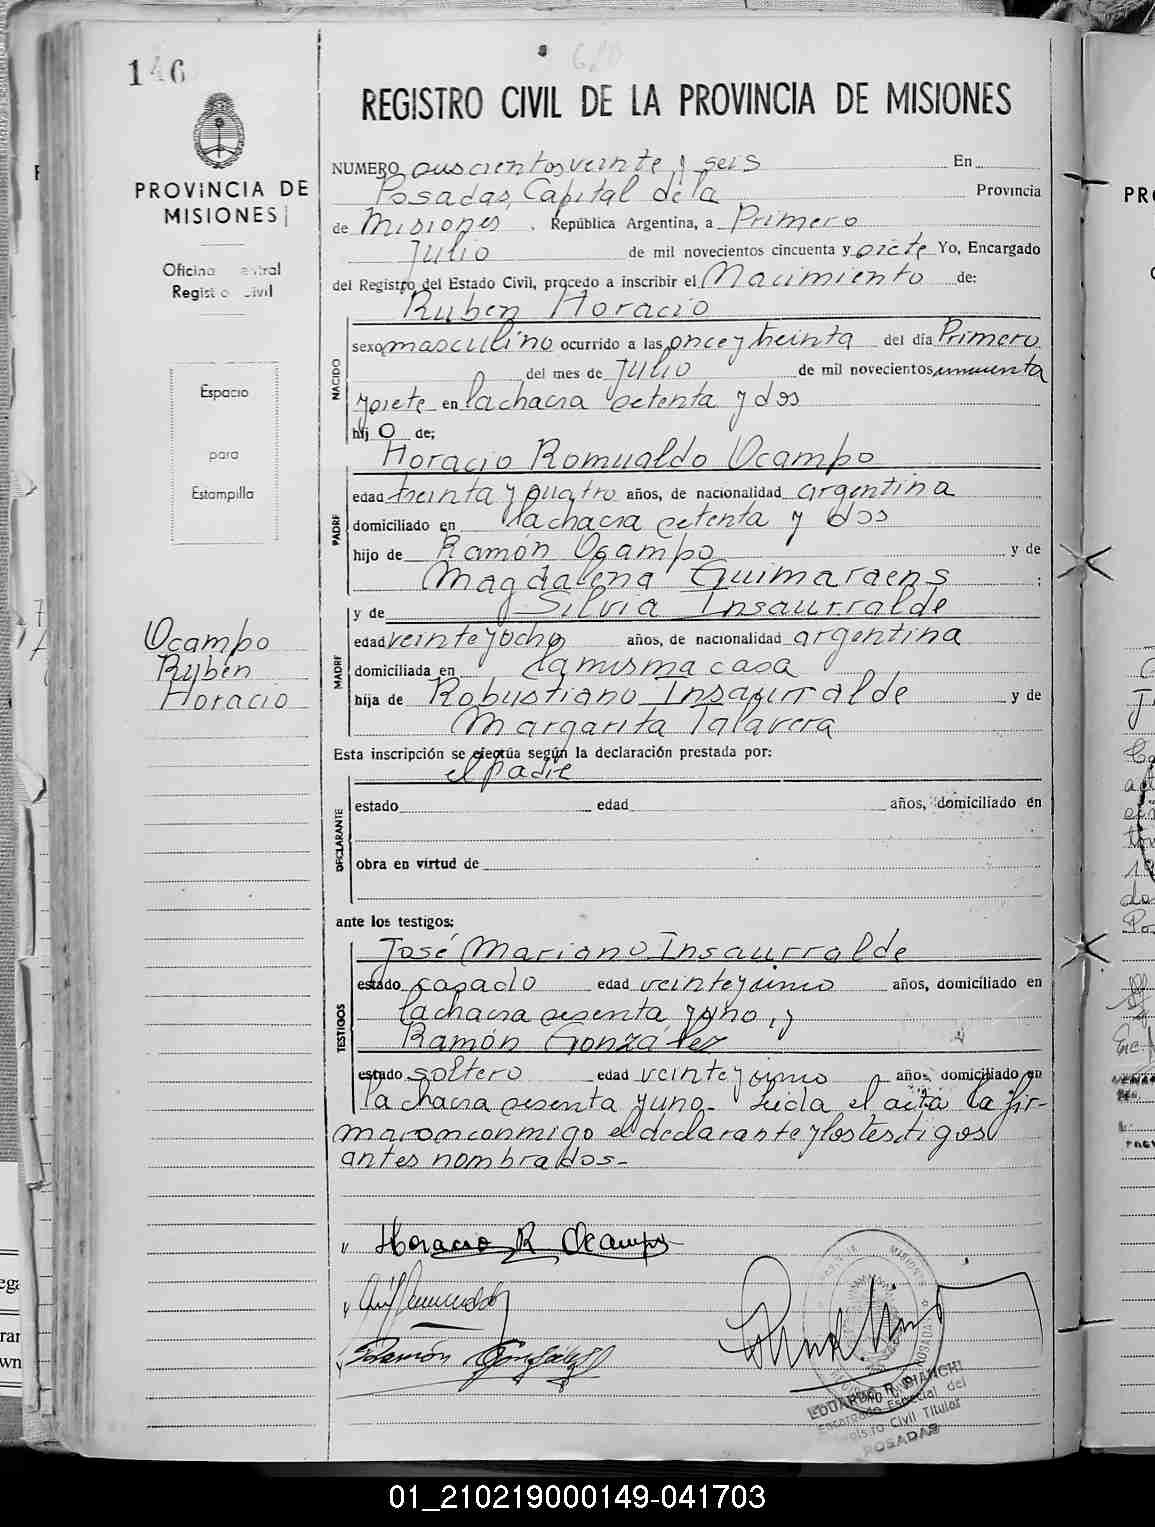 146
PROVINCIA DE
MISIONES
Oficina Central
Registro Civil
Espacio
para
Estampilla
Ocampo
Ruben
Horacio
REGISTRO CIVIL DE LA PROVINCIA DE MISIONES
NUMERO ouscientos veinte y seis En
Posadas, Capital de la Provincia
de Misiones, República Argentina, a Primero
Julio de mil novecientos cincuenta y siete Yo, Encargado
del Registro del Estado Civil, procedo a inscribir el Nacimiento de:
Ruben Horacio
NACIDO
sexo masculino ocurrido a las once y treinta del día Primero
del mes de Julio de mil novecientos cincuenta
y siete en la chacra setenta y dos
hijo de:
Horacio Romualdo Ocampo
PADRE
edad treinta y cuatro años, de nacionalidad argentina
domiciliado en la chacra setenta y dos
hijo de Ramón Ocampo y de
Magdalena Guimaraens
y de Silvia Insaurralde
MADRE
edad veinte y ocho años, de nacionalidad argentina
domiciliada en la misma casa
hija de Robustiano Insaurralde y de
Margarita Talavera
Esta inscripción se efectúa según la declaración prestada por:
el padre
DECLARANTE
estado edad años, domiciliado en
obra en virtud de
ante los testigos:
José Mariano Insaurralde
TESTIGOS
estado casado edad veinte y cinco años, domiciliado en
la chacra sesenta y uno, y
Ramón González
estado soltero edad veinte y cinco años domiciliado en
la chacra sesenta y uno.- Leida el acta la fir-
maron conmigo el declarante y los testigos
antes nombrados.-
Horacio R Ocampo
Ramón González
EDUARDO R. BIANCHI
Encargado Especial del
Registro Civil Titular
POSADAS
01_210219000149-041703